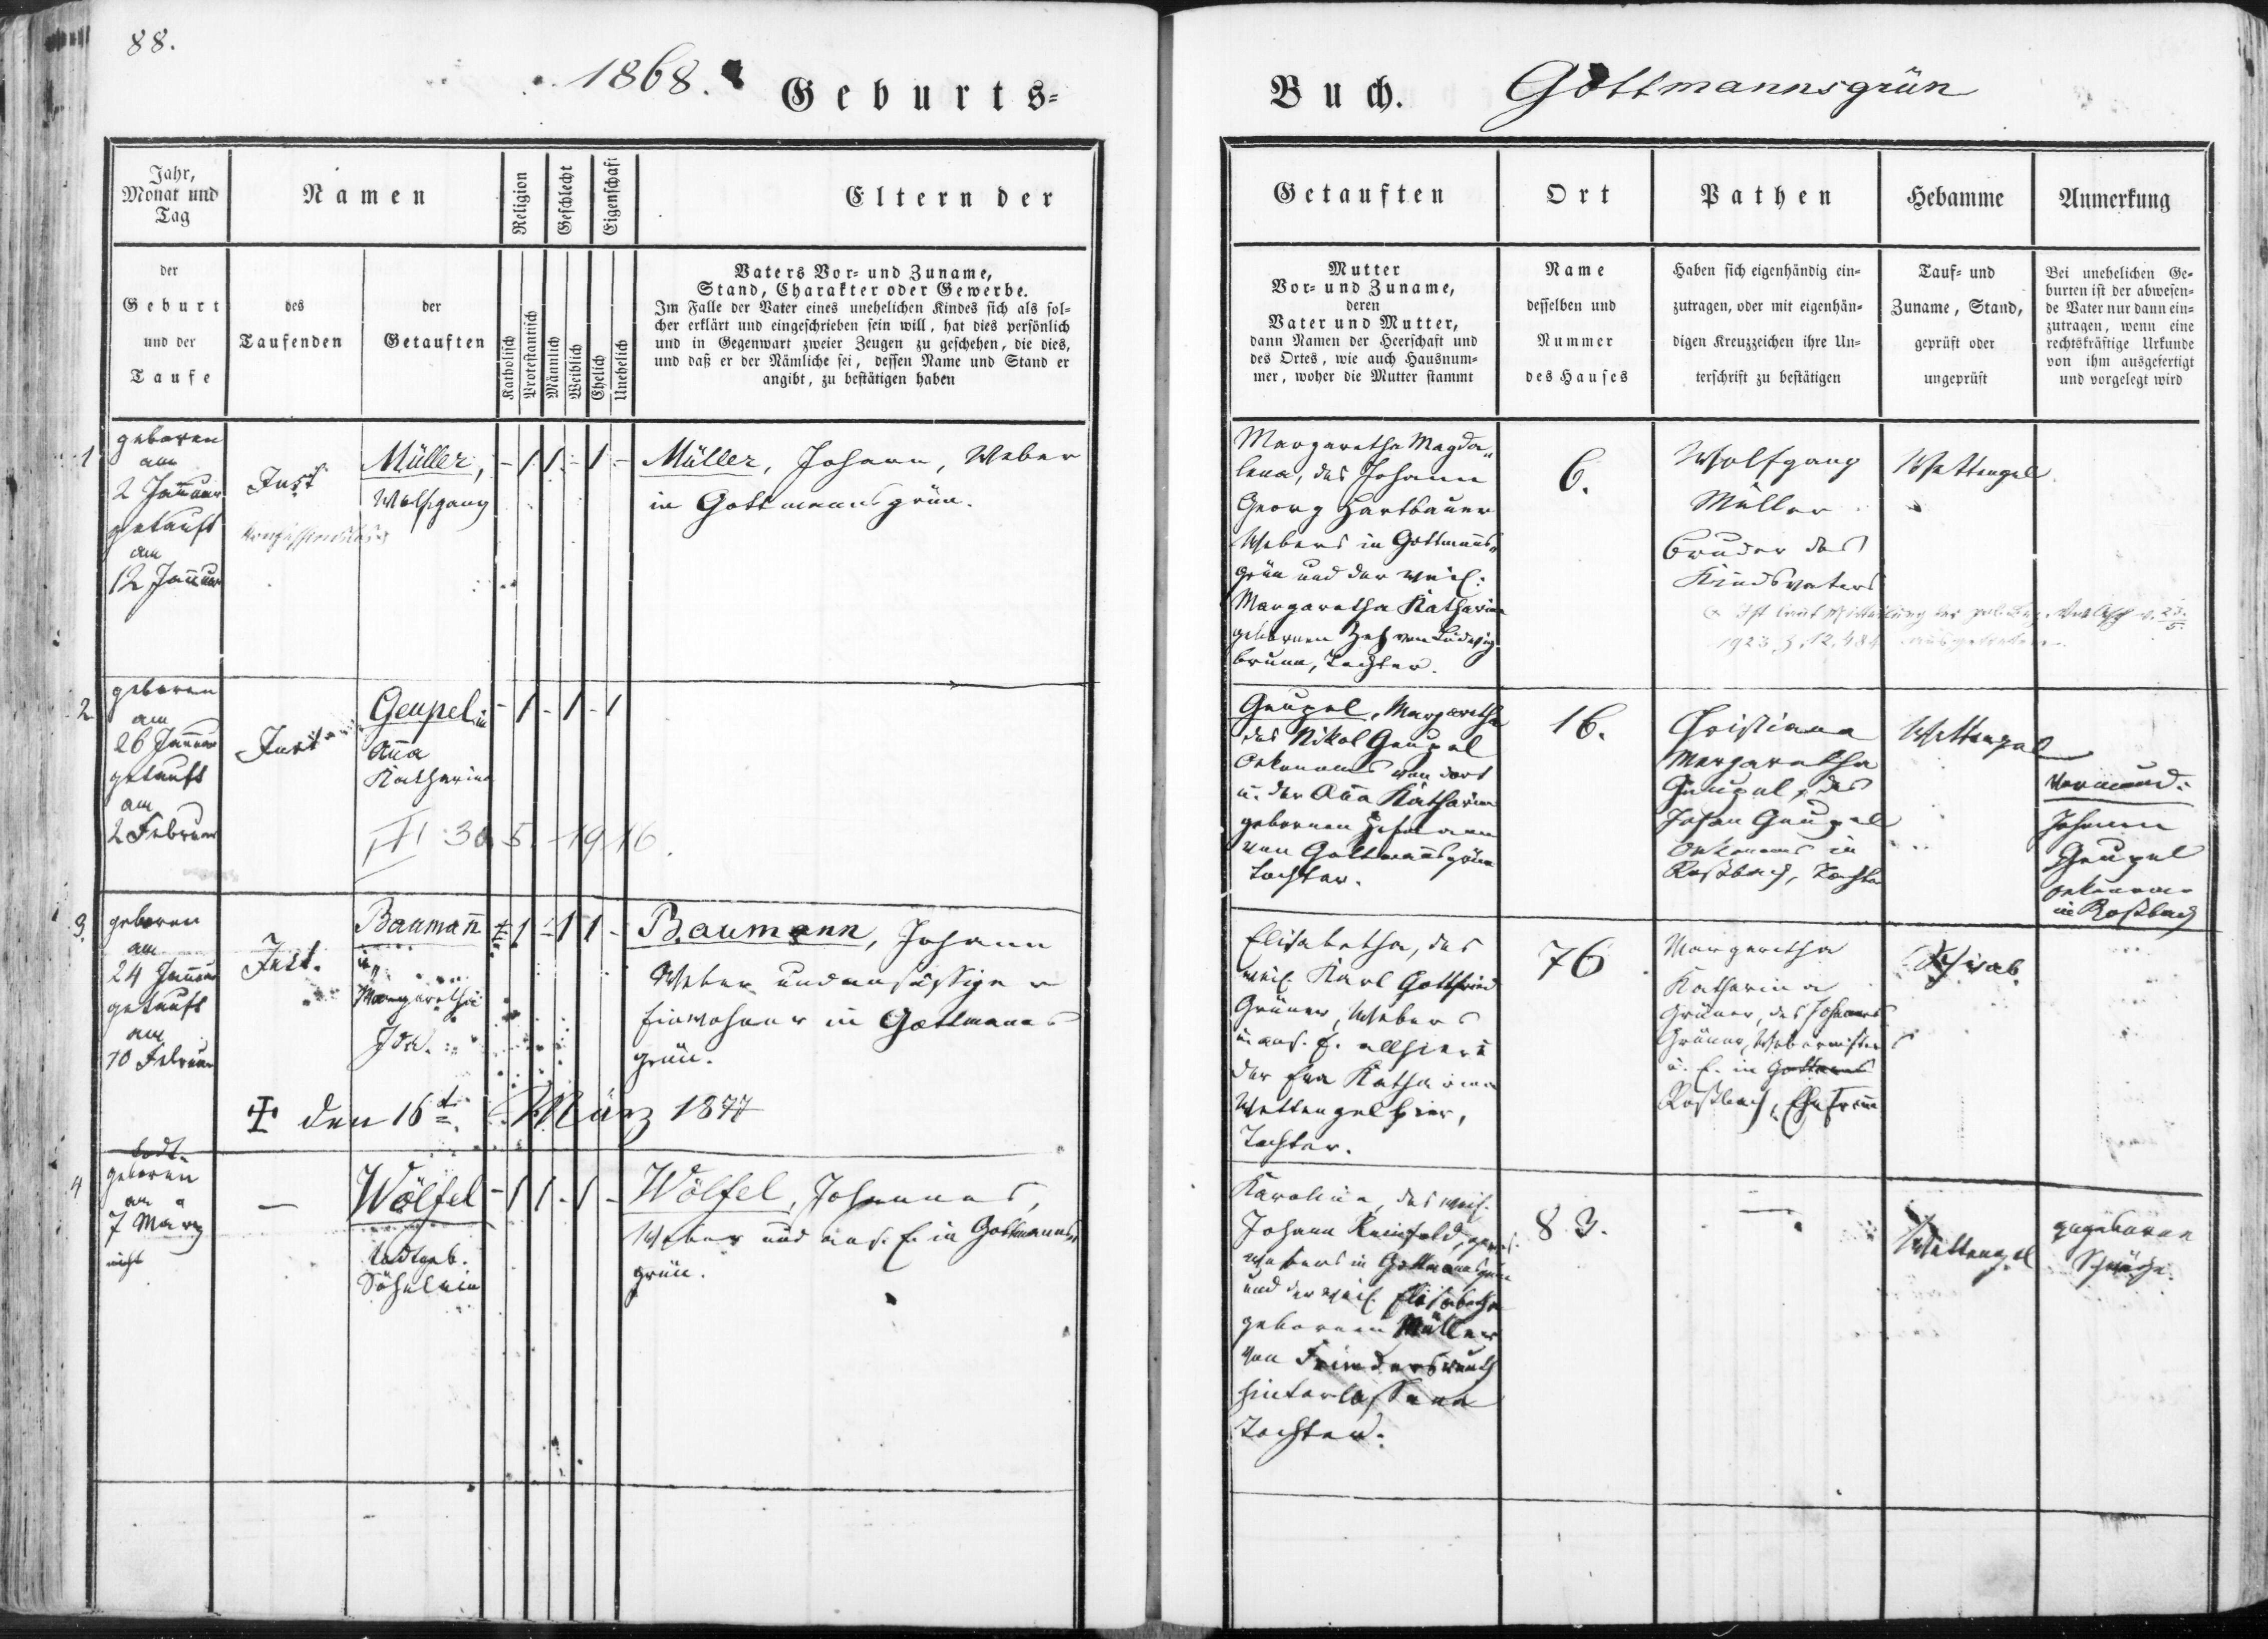 88.
1868. Geburts-
Buch. Gottmannsgrün
Jahr,
Monat und
Tag
Namen
Religion
Geschlecht
Eigenschaft
Eltern der
Getauften
Ort
Pathen
Hebamme
Anmerkung
der
Geburt
und der
Taufe
des
Taufenden
der
Getauften
Katholisch
Protestantisch
Männlich
Weiblich
Ehelich
Unehelich
Vaters Vor- und Zuname,
Stand, Charakter oder Gewerbe.
Im Falle der Vater eines unehelichen Kindes sich als sol-
cher erklärt und eingeschrieben sein will, hat dies persönlich
und in Gegenwart zweier Zeugen zu geschehen, die dies,
und daß er der Nämliche sei, dessen Name und Stand er
angibt, zu bestätigen haben
Mutter
Vor- und Zuname,
deren
Vater und Mutter,
dann Namen der Heerschaft und
des Ortes, wie auch Hausnum-
mer, woher die Mutter stammt
Name
desselben und
Nummer
des Hauses
Haben sich eigenhändig ein-
zutragen, oder mit eigenhän-
digen Kreuzzeichen ihre Un-
terschrift zu bestätigen
Tauf- und
Zuname, Stand,
geprüft oder
ungeprüft
Bei unehelichen Ge-
burten ist der abwesen-
de Vater nur dann ein-
zutragen, wenn eine
rechtskräftige Urkunde
von ihm ausgefertigt
und vorgelegt wird
1
geboren
am
2 Januar
getauft
am
12 Januar
Just
Müller,
Wolfgang
- 1 1 - 1 -
Müller, Johann, Weber
in Gottmannsgrün.
Margaretha Magda„
lena, des Johann
Georg Hartbauer
Webers in Gottmanns„
grün und der weil.
Margaretha Katharina
gebornen Zeh von Ludwig
brunn, Tochter.
6.
Wolfgang
Müller
Bruder des
Kindsvaters
Wettengel
1923 Z. 12.484 ausgetreten
2
geboren
am
26 Januar
getauft
am
2 Februar
Just
Geupel
Anna
Katharina
- 1 - 1 - 1
30 5 1916.
Geupel, Margaretha
des Nikol Geupel
Oekonoms von dort
u. der Anna Katharina
gebornen Hofmann
von Gottmannsgrün
Tochter.
16.
Christiana
Margaretha
Geupel, des
Johann Geupel
Oekonoms in
Roßbach, Tochter
Wettengel
Vormund:
Johann
Geupel
Oekonom
in Roßbach
3.
geboren
am
24 Januar
getauft
am
10 Februar
Just.
Baumann
in
Margaretha
Ida.
1 - 1 1 -
Baumann, Johann
Weber und ansässiger
Einwohner in Gottmanns
grün.
Elisabetha, des
weil. Karl Gottfried
Grüner, Webers
u. ans. E. allhier u
der Eva Katharina
Wettengel hier,
Tochter.
76
Margaretha
Katharina
Grüner, des Johannes
Grüner, Webermeister
u. E. in Gottmanns
Roßbach, Ehefrau
Schwab
den 16t. März 1877
4
todt
geboren
am
7 März
nicht
—
Wölfel
todtgeb.
Söhnlein
- 1 1 - 1 -
Wölfel, Johannes,
Weber und ans. E. in Gottmanns„
grün.
Karolina, des weil.
Johann Reinhold,
Webers in Gottmannsgrün
und der weil. Elisabetha
gebornen Müller
von
hinterlassene
Tochter.
83.
—
Wettengel
Schwäche.